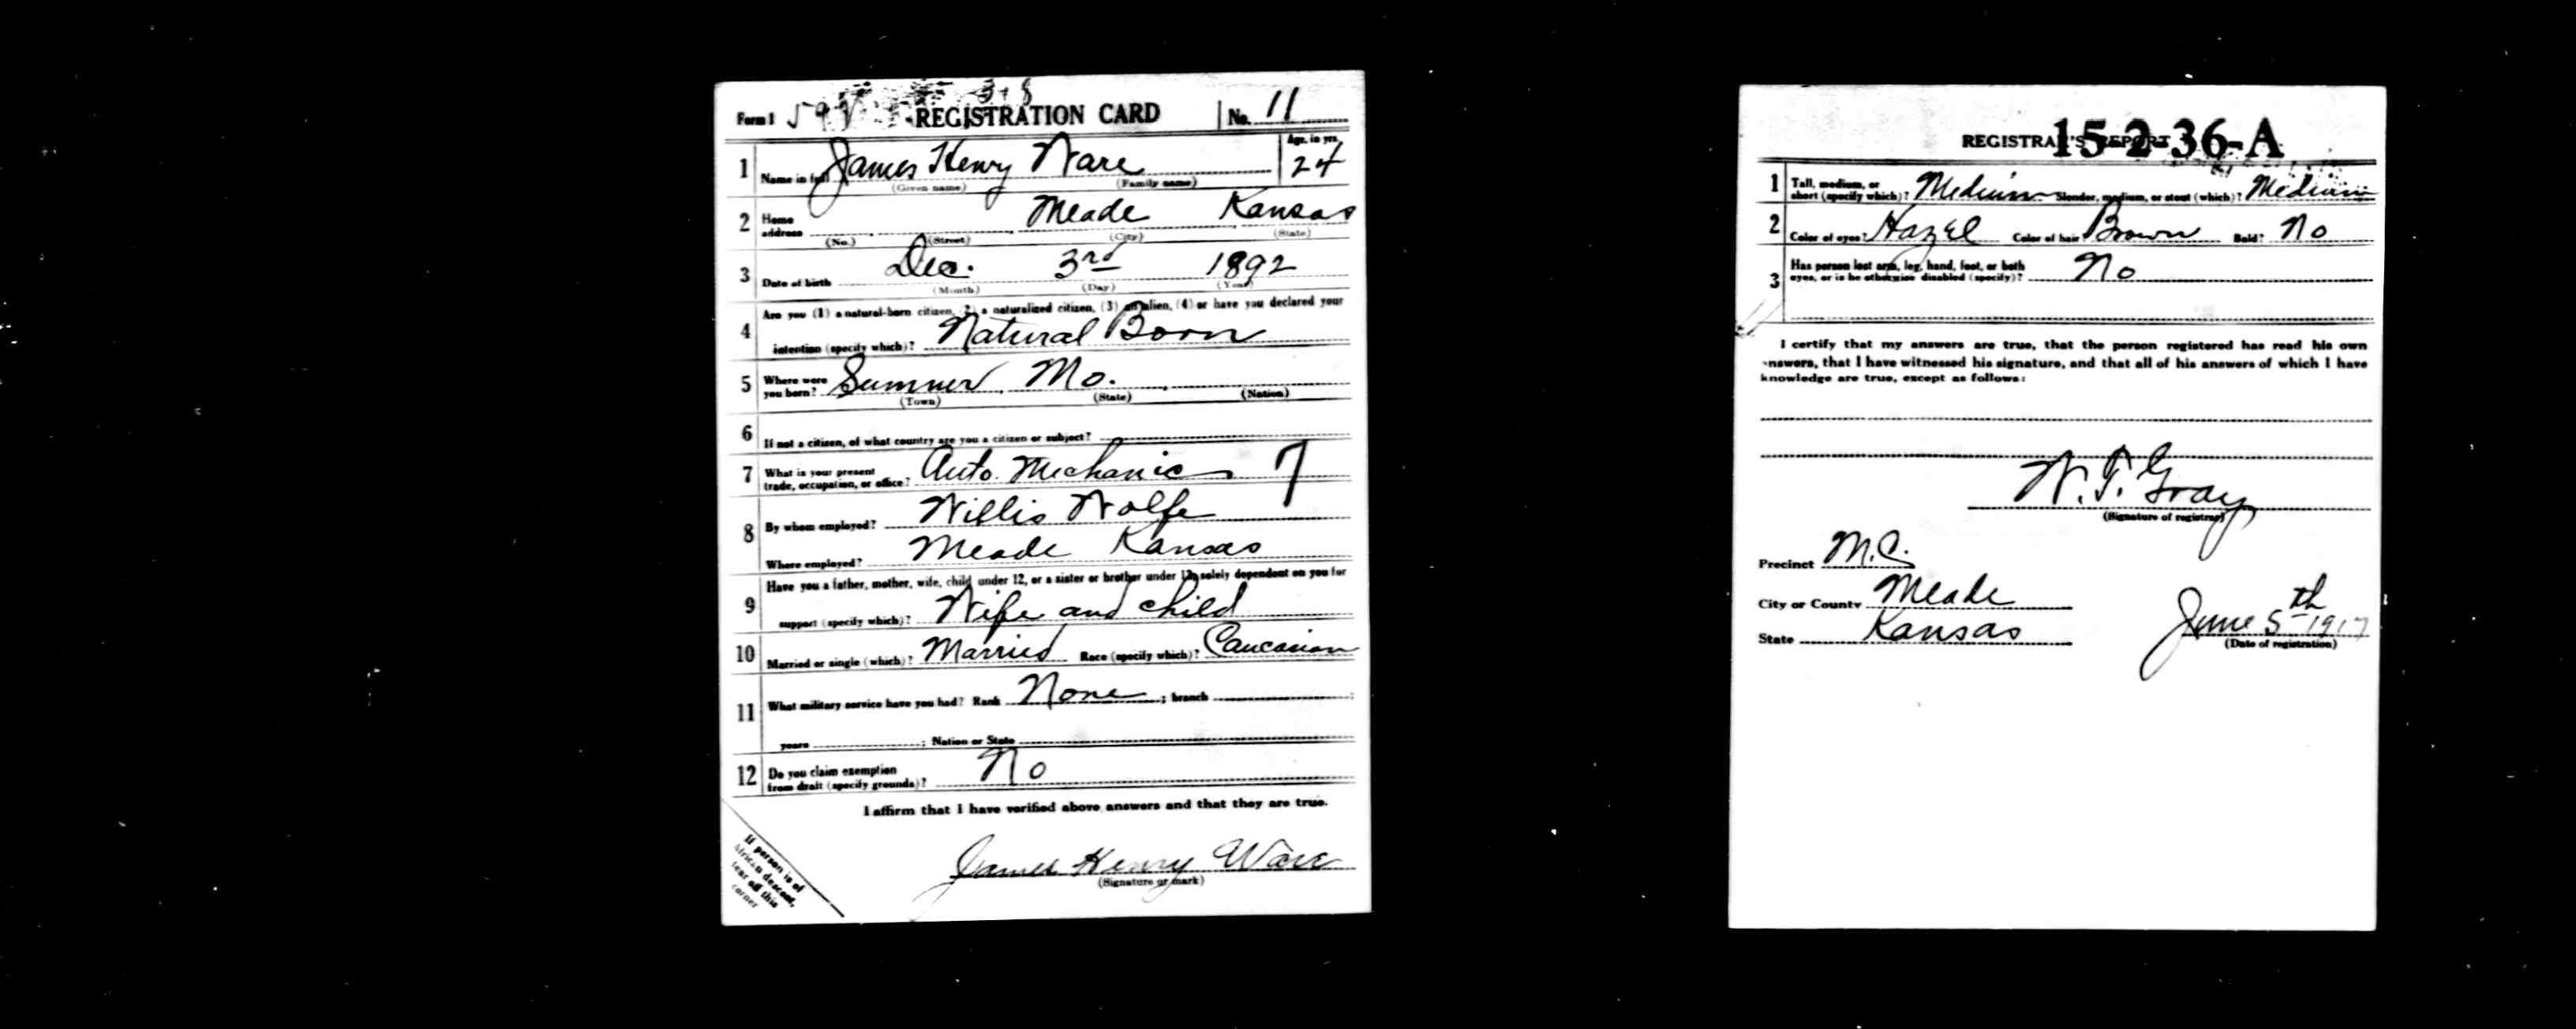 Form 1 REGISTRATION CARD No. 11
1 Name in full James Henry Ware Age, in yrs. 24
(Given name) (Family name)
2 Home address Meade Kansas
(No.) (Street) (City) (State)
3 Date of birth Dec. 3rd 1892
(Month) (Day) (Year)
4 Are you (1) a natural-born citizen, (2) a naturalized citizen, (3) an alien, (4) or have you declared your
intention (specify which)? Natural Born
5 Where were you born? Sumner Mo.
(Town) (State) (Nation)
6 If not a citizen, of what country are you a citizen or subject?
7 What is your present trade, occupation, or office? Auto. Mechanic 7
8 By whom employed? Willis Wolfe
Where employed? Meade Kansas
9 Have you a father, mother, wife, child under 12, or a sister or brother under 12, solely dependent on you for
support (specify which)? Wife and child
10 Married or single (which)? Married Race (specify which)? Caucasian
11 What military service have you had? Rank None ; branch ;
years ; Nation or State
12 Do you claim exemption from draft (specify grounds)? No
I affirm that I have verified above answers and that they are true.
James Henry Ware
(Signature or mark)
If person is of
African descent,
tear off this
corner
15-2-36-A
REGISTRAR'S REPORT
1 Tall, medium, or short (specify which)? Medium Slender, medium, or stout (which)? Medium
2 Color of eyes? Hazel Color of hair? Brown Bald? No
3 Has person lost arm, leg, hand, foot, or both eyes, or is he otherwise disabled (specify)? No
I certify that my answers are true, that the person registered has read his own
answers, that I have witnessed his signature, and that all of his answers of which I have
knowledge are true, except as follows:
W. T. Gray
(Signature of registrar)
Precinct M.C.
City or County Meade
State Kansas
June 5th 1917
(Date of registration)